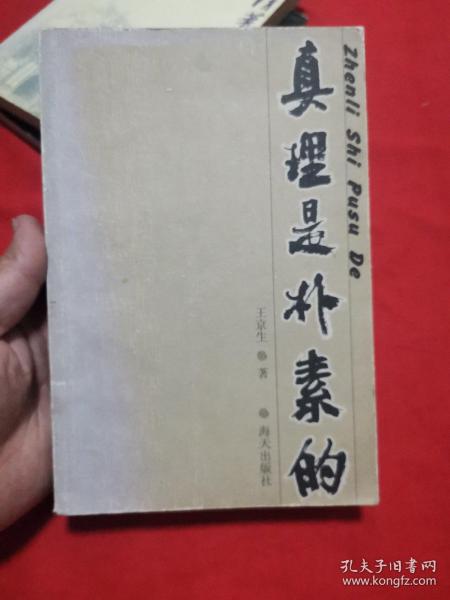 真理是朴素的
Zhenli Shi Pusu De
王京生 著
海天出版社
孔夫子旧书网
www.kongfz.com